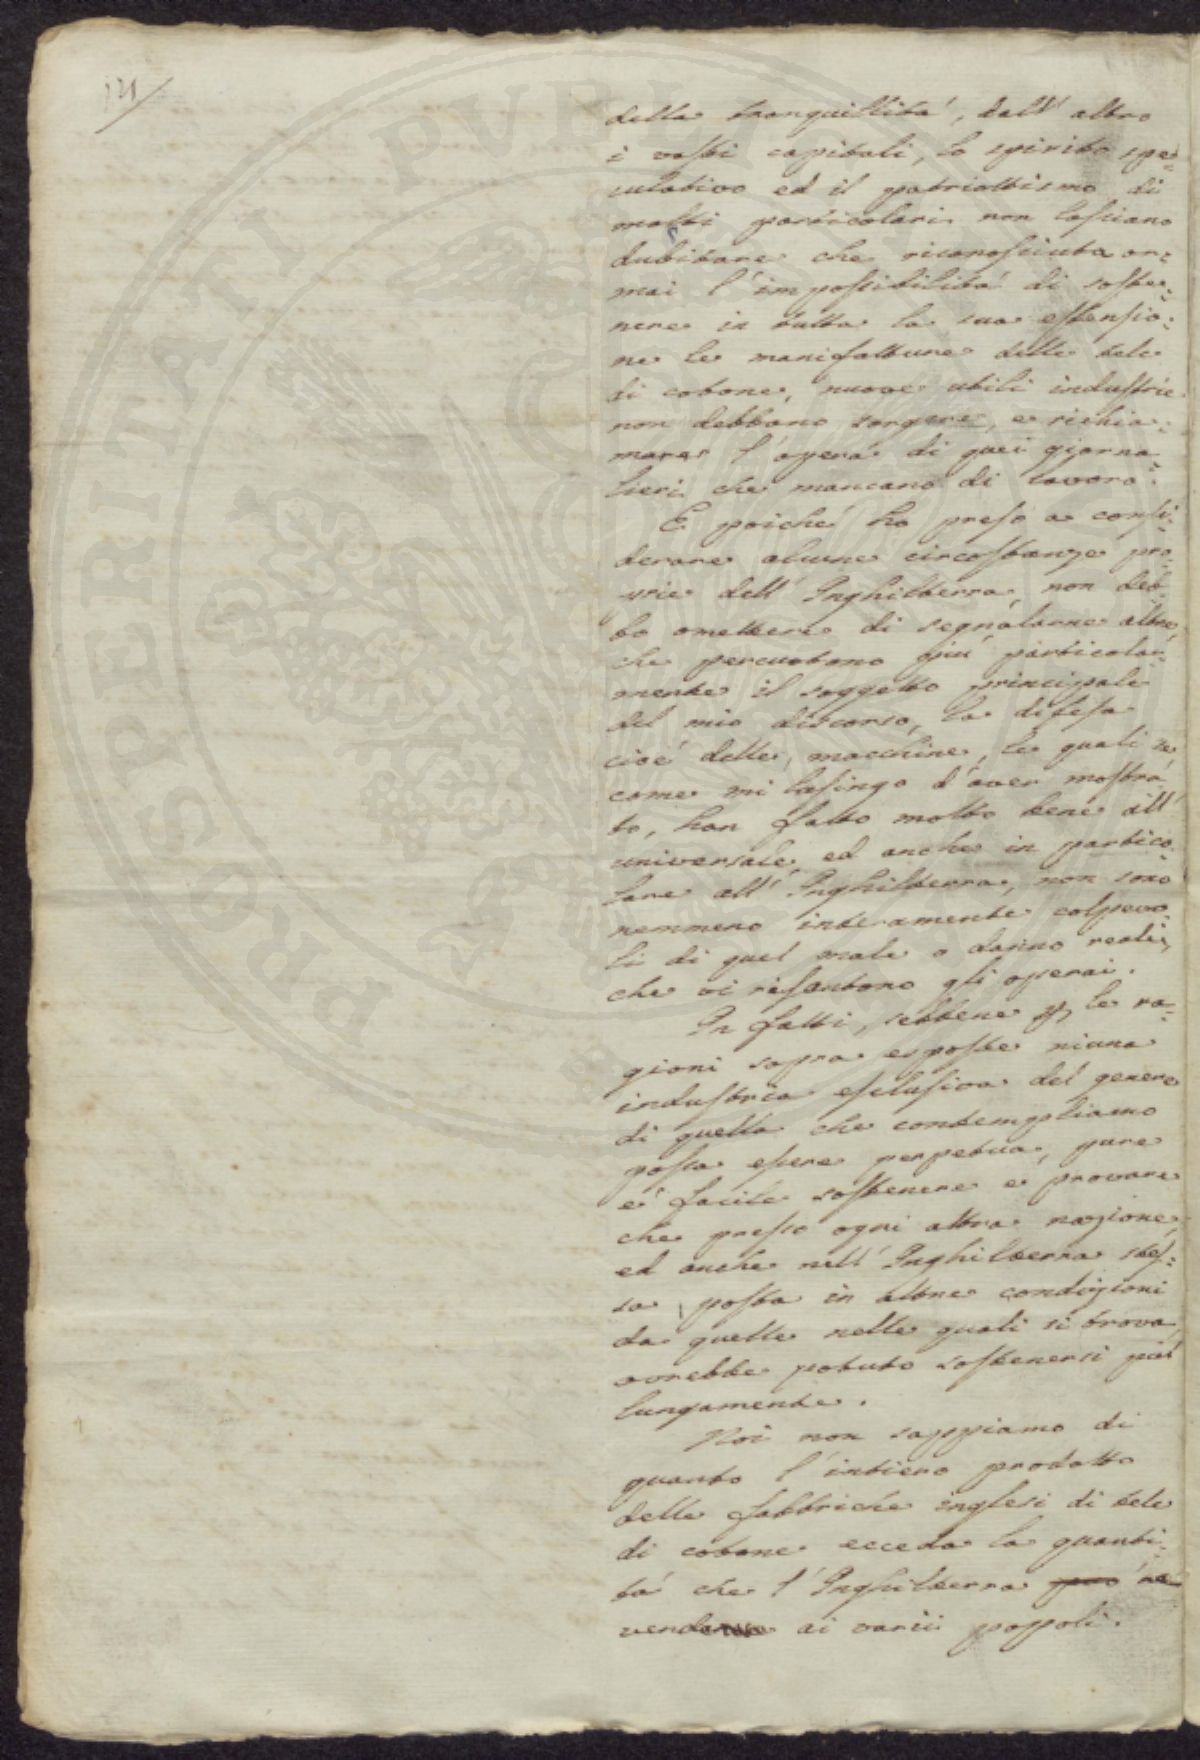 121
della tranquillità, dall' altro
i vasti capitali, lo spirito spe=
culativo ed il patriottismo di
molti particolari non lasciano
dubitare che riconosciuta or=
mai l'impossibilità di soste=
nere in tutta la sua estensio=
ne le manifatture delle tele
di cotone, nuove utili industrie
non debbano sorgere, e richia=
mare l'opera di quei giorna=
lieri che mancano di lavoro.
E poiché ho preso a consi=
derare alcune circostanze pro=
prie dell' Inghilterra, non deb=
bo omettere di segnalarne altre,
che percuotono più particolar=
mente il soggetto principale
del mio discorso, la difesa
cioé delle macchine, le quali se,
come mi lusingo d'aver mostra=
to, han fatto molto bene all'
universale, ed anche in partico=
lare all' Inghilterra, non sono
nemmeno interamente colpevo=
li di quel male o danno reale,
che vi risentono gli operai.
In fatti, sebbene p, le ra=
gioni sopra esposte niuna
industria esclusiva del genere
di quella che contempliamo
possa essere perpetua, pure
é facile sostenere e provare
che presso ogni altra nazione,
ed anche nell' Inghilterra stes=
sa, posta in altre condizioni
da quelle nelle quali si trova,
avrebbe potuto sostenersi più
lungamente.
Noi non sappiamo di
quanto l'intiero prodotto
delle fabbriche inglesi di tele
di cotone ecceda la quanti=
tà che l'Inghilterra può ne
venda ai varii popoli.
PROSPERITATI PVBL